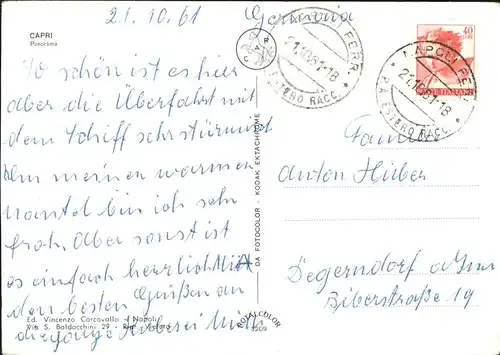 21.10.61 Germania
CAPRI
Panorama
So schön ist es hier
aber die Überfahrt mit
dem Schiff sehr stürmisch
Um meinen warmen
Mantel bin ich sehr
froh. Aber sonst ist
es einfach herrlich. Mit
den besten Grüßen an
Ed. Vincenzo Carcavallo - Napoli
Via S. Baldacchini 29 -
DA FOTOCOLOR - KODAK EKTACHROME
ROTALCOLOR
NAPOLI FERR.
21.10.61-18
P.A. ESTERO RACC.
40
Familie
Anton Huber
Degerndorf a/Inn
Biberstraße 19